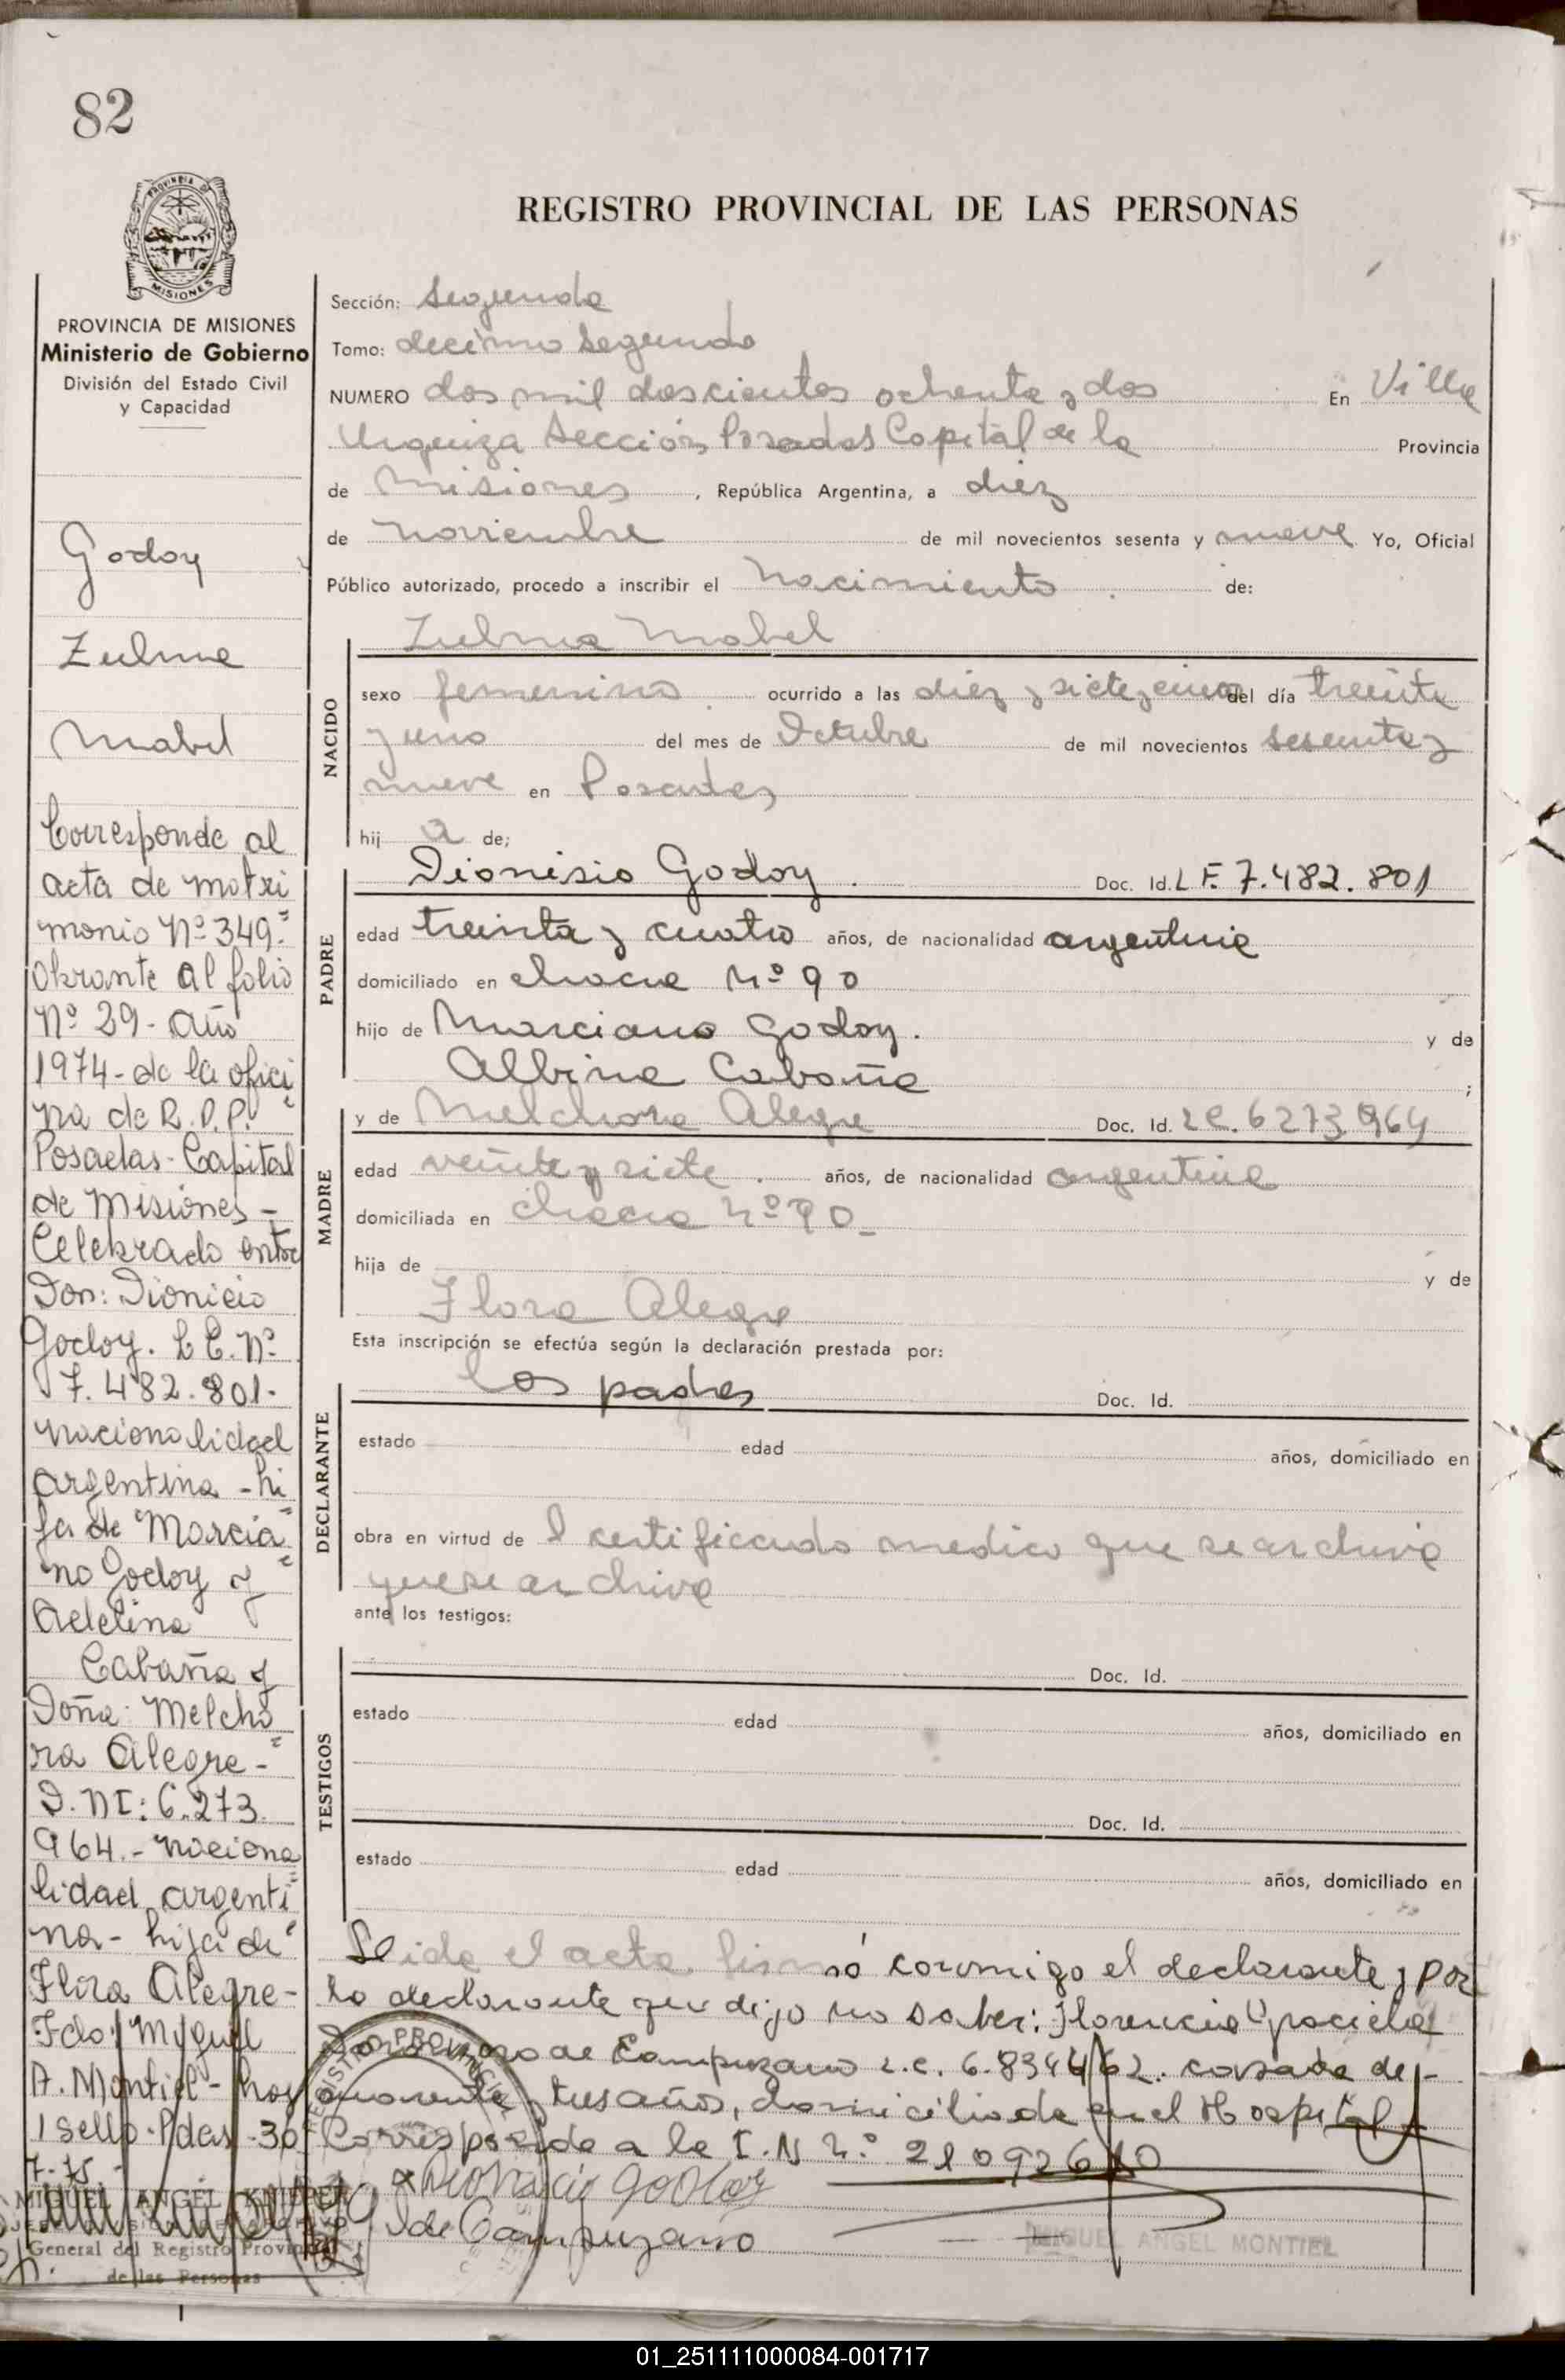 82
PROVINCIA DE MISIONES
Ministerio de Gobierno
División del Estado Civil
y Capacidad
Godoy
Zulma
Mabel
Corresponde al
acta de matri
monio Nº 349-
Obrante al folio
Nº 29- año
1974- de la ofici
na de R. P. P.
Posadas- Capital
de Misiones -
Celebrado entre
Don: Dionicio
Godoy. L E. Nº
7. 482. 801-
nacionalidad
argentina - hi
jo de Marcia
no Godoy y
Adelina
Cabaña y
Doña: Melcho
ra Alegre -
D. NI: 6.273.
964.- naciona
lidad argenti
na- hija de
Flora Alegre-
Fdo: Miguel
A. Montiel- hay
1 sello. Pdas -30
7-75.-
MIGUEL ANGEL
General del Registro Provincial
de las Personas
REGISTRO PROVINCIAL DE LAS PERSONAS
Sección: Segunda
Tomo: decimo segundo
NUMERO dos mil doscientos ochenta y dos En Villa
Urquiza Sección Posadas Capital de la Provincia
de Misiones, República Argentina, a diez
de noviembre de mil novecientos sesenta y nueve Yo, Oficial
Público autorizado, procedo a inscribir el nacimiento de:
Zulma Mabel
NACIDO
sexo femenino ocurrido a las diez y siete y cinco del día treinta
y uno del mes de Octubre de mil novecientos sesenta y
nueve en Posadas
hij a de;
PADRE
Dionisio Godoy. Doc. Id. L E. 7.482.801
edad treinta y cuatro años, de nacionalidad argentina
domiciliado en chacra Nº 90
hijo de Marciano Godoy. y de
Albina Cabaña ;
MADRE
y de Melchora Alegre Doc. Id. LC. 6273964
edad veinte y siete. años, de nacionalidad argentina
domiciliada en chacra Nº 90-
hija de y de
Flora Alegre
Esta inscripción se efectúa según la declaración prestada por:
DECLARANTE
los padres Doc. Id.
estado edad años, domiciliado en
obra en virtud de l certificado medico que se archiva
que se archiva
ante los testigos:
TESTIGOS
Doc. Id.
estado edad años, domiciliado en
Doc. Id.
estado edad años, domiciliado en
Leida el acta firmó conmigo el declarante y por
la declarante que dijo no saber: Florencia Graciela
de Campuzano L.C. 6.834462. casada de
cuarenta y tres años, domiciliada en el Hospital
Corresponde a la I. N Nº 21092610
x Dionicio Godoy
de Campuzano
MIGUEL ANGEL MONTIEL
01_251111000084-001717